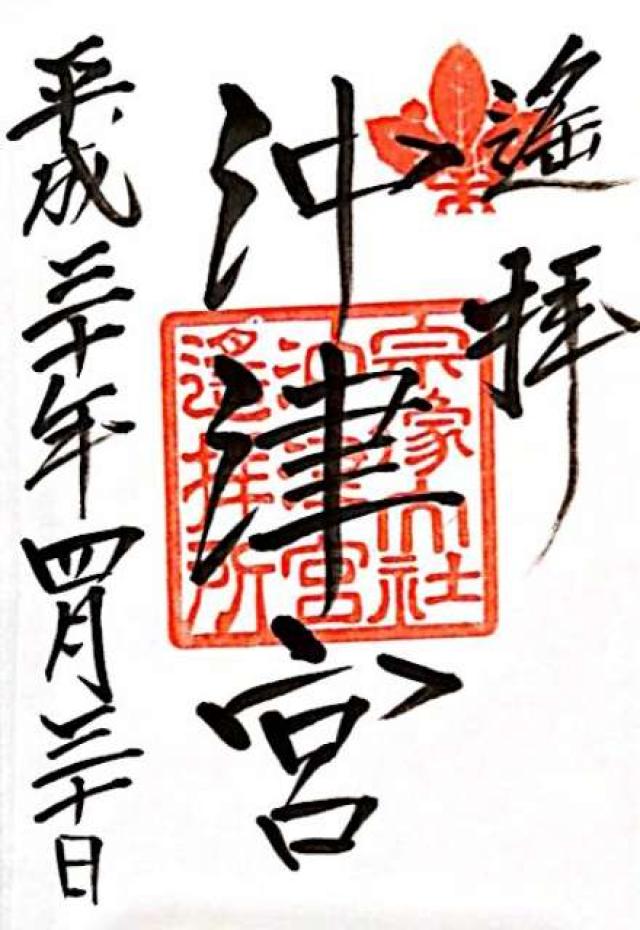 遙拝
沖津宮
宗像大社
沖津宮
遙拝所
平成三十年四月三十日